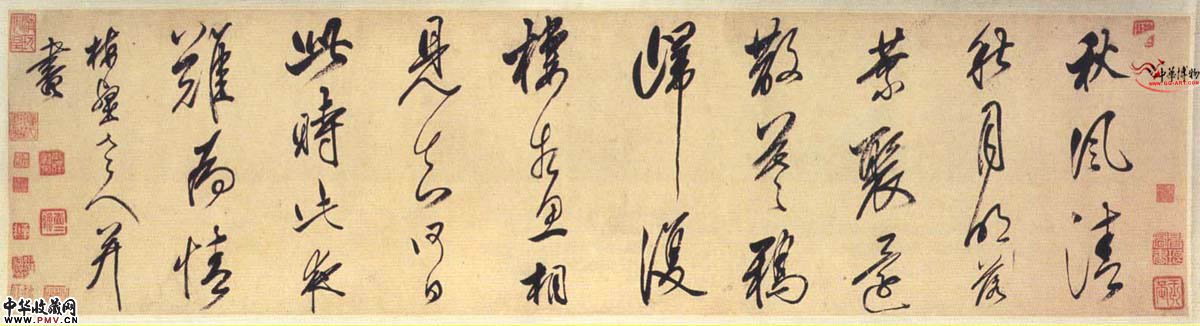 秋風清
秋月明落
葉聚還
散暮鴉
歸復
棲相思相
見知何日
此時此夜
難為情
梅壑老人并
書
中華博物
WWW.GG-ART.COM
中华收藏网
WWW.PMV.CN